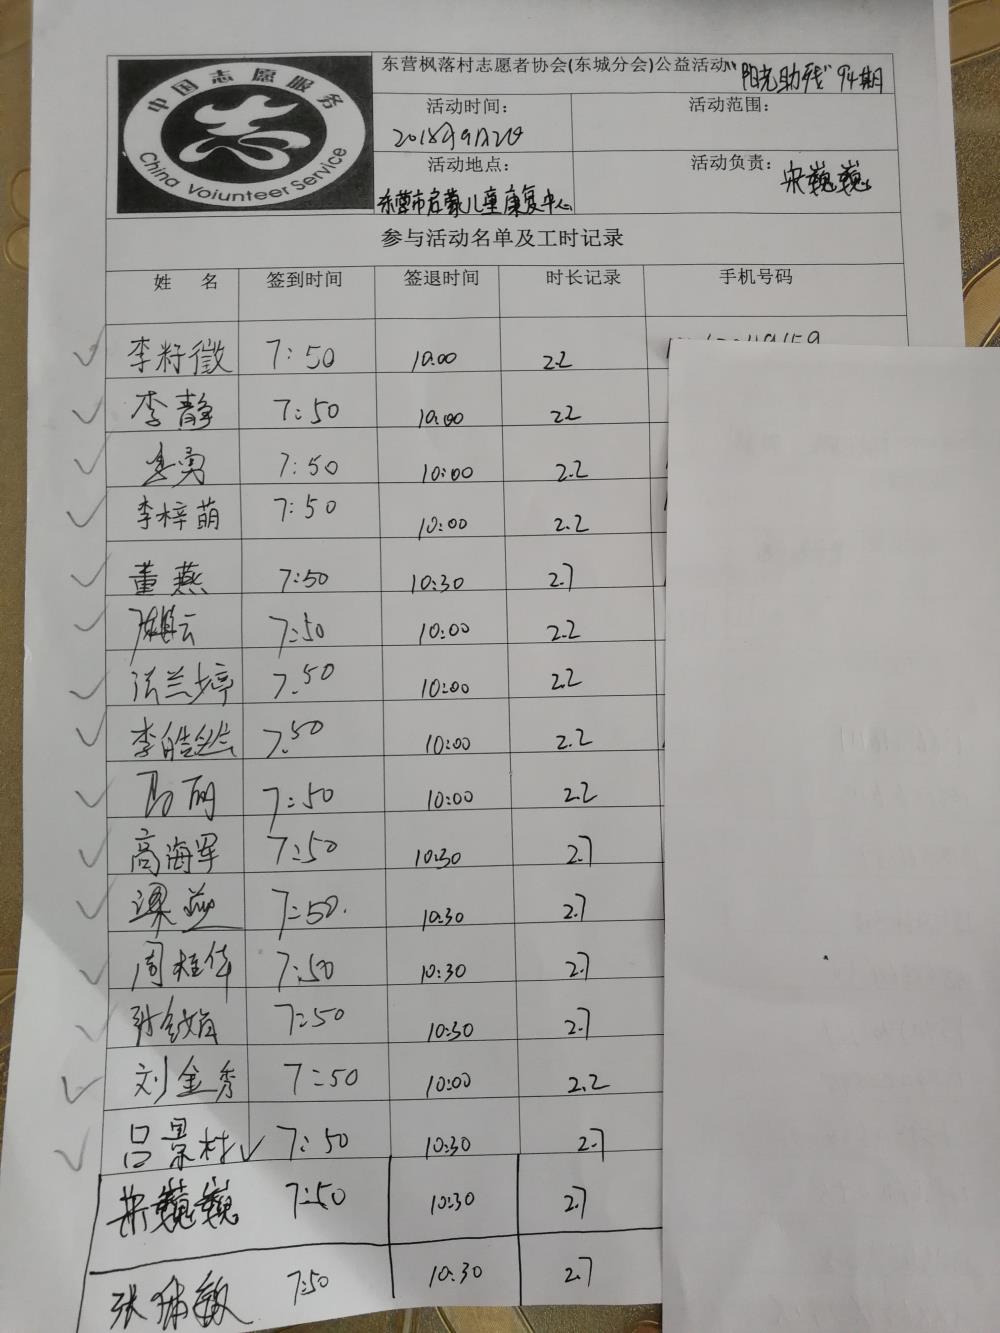 中国志愿服务
China Voiunteer Service
东营枫落村志愿者协会(东城分会)公益活动"阳光助残"94期
活动时间：
活动范围：
2018年9月2日
活动地点：
活动负责：宋巍巍
东营市启蒙儿童康复中心
参与活动名单及工时记录
姓 名 签到时间 签退时间 时长记录 手机号码
李籽徵 7:50 10:00 2.2
李静 7:50 10:00 2.2
7:50 10:00 2.2
李梓萌 7:50 10:00 2.2
董燕 7:50 10:30 2.7
7:50 10:00 2.2
兰婷 7:50 10:00 2.2
李皓然 7:50 10:00 2.2
马丽 7:50 10:00 2.2
高海军 7:50 10:30 2.7
梁燕 7:50. 10:30 2.7
周桂华 7:50 10:30 2.7
7:50 10:30 2.7
刘金秀 7:50 10:00 2.2
吕景村 7:50 10:30 2.7
宋巍巍 7:50 10:30 2.7
张敏 7:50 10:30 2.7